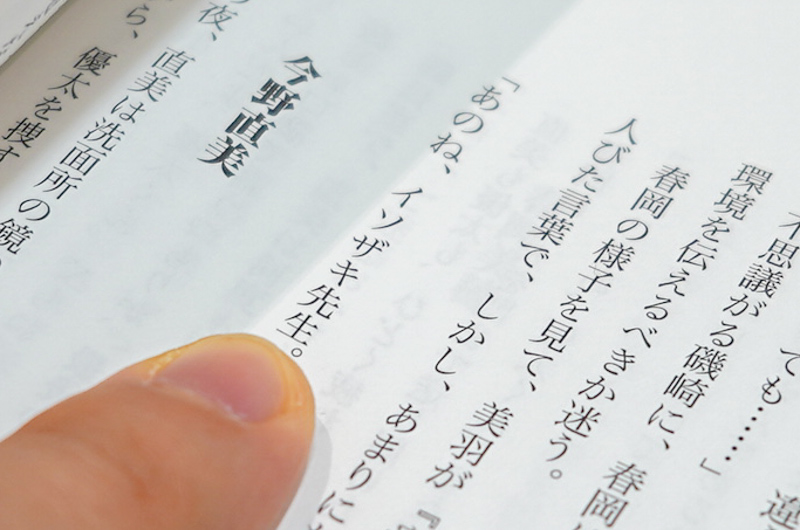 でも……」
不思議がる磯崎に、春岡
環境を伝えるべきか迷う。
春岡の様子を見て、美羽が『
人びた言葉で、しかし、あまりに
「あのね、イソザキ先生。
今野直美
夜、直美は洗面所の鏡、
ら、優太を捜す